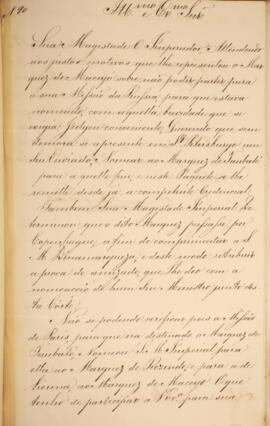 Nº 20
Illmo. e Exmo. Snr.
Sua Magestade O Imperador, Attendendo
aos justos motivos que lhe representou o Mar-
quez de Maceyó sobre não poder partir para
a sua Missão da Russia, para que estava
nomeado, com aquella brevidade que se
exigia: Julgou conveniente, Querendo que sem
demora se apresente em St. Petersburgo um
Seu Enviado, Nomear ao Marquez de Taubaté
para aquelle fim, e neste Paquete se lhe
remette desde já a competente Credencial.
Tambem Sua Magestade Imperial De-
terminou que o dito Marquez passasse por
Copenhague, a fim de comprimentar a S.
M. Dinamarqueza, e deste modo retribuir
a prova de amizade, que lhe deu com a
nomeação de hum Seu Ministro junto des-
ta Corte.
Não se podendo verificar pois a Missão
de Paris para que era destinado o Marquez de
Taubaté, Nomeou S. M. Imperial para
ella ao Marquez de Rezende, e para a de
Vienna, ao Marquez de Maceyó. O que
tenho de participar a V. Exa. para sua